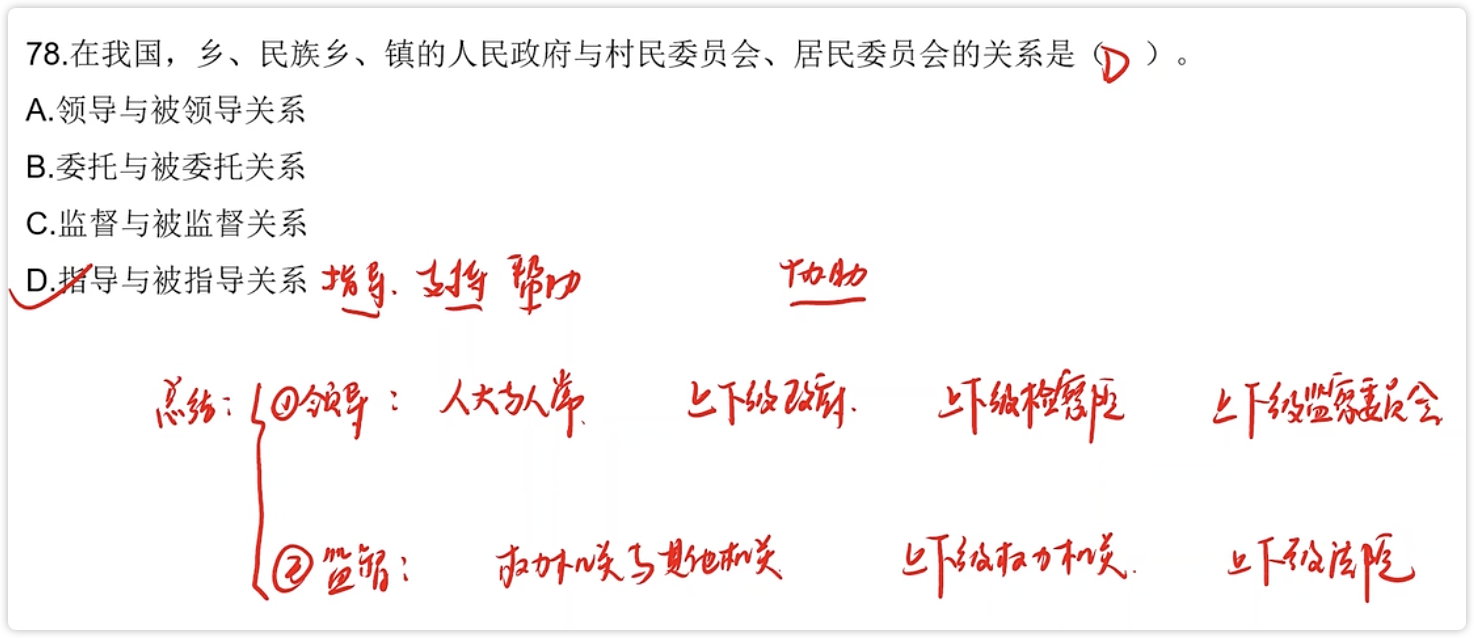 78.在我国，乡、民族乡、镇的人民政府与村民委员会、居民委员会的关系是（D）。
A.领导与被领导关系
B.委托与被委托关系
C.监督与被监督关系
D.指导与被指导关系 指导. 支持 帮助 协助
总结： ①领导： 人大与人常 上下级政府. 上下级检察院 上下级监察委员会
②监督： 权力机关与其他机关 上下级权力机关. 上下级法院